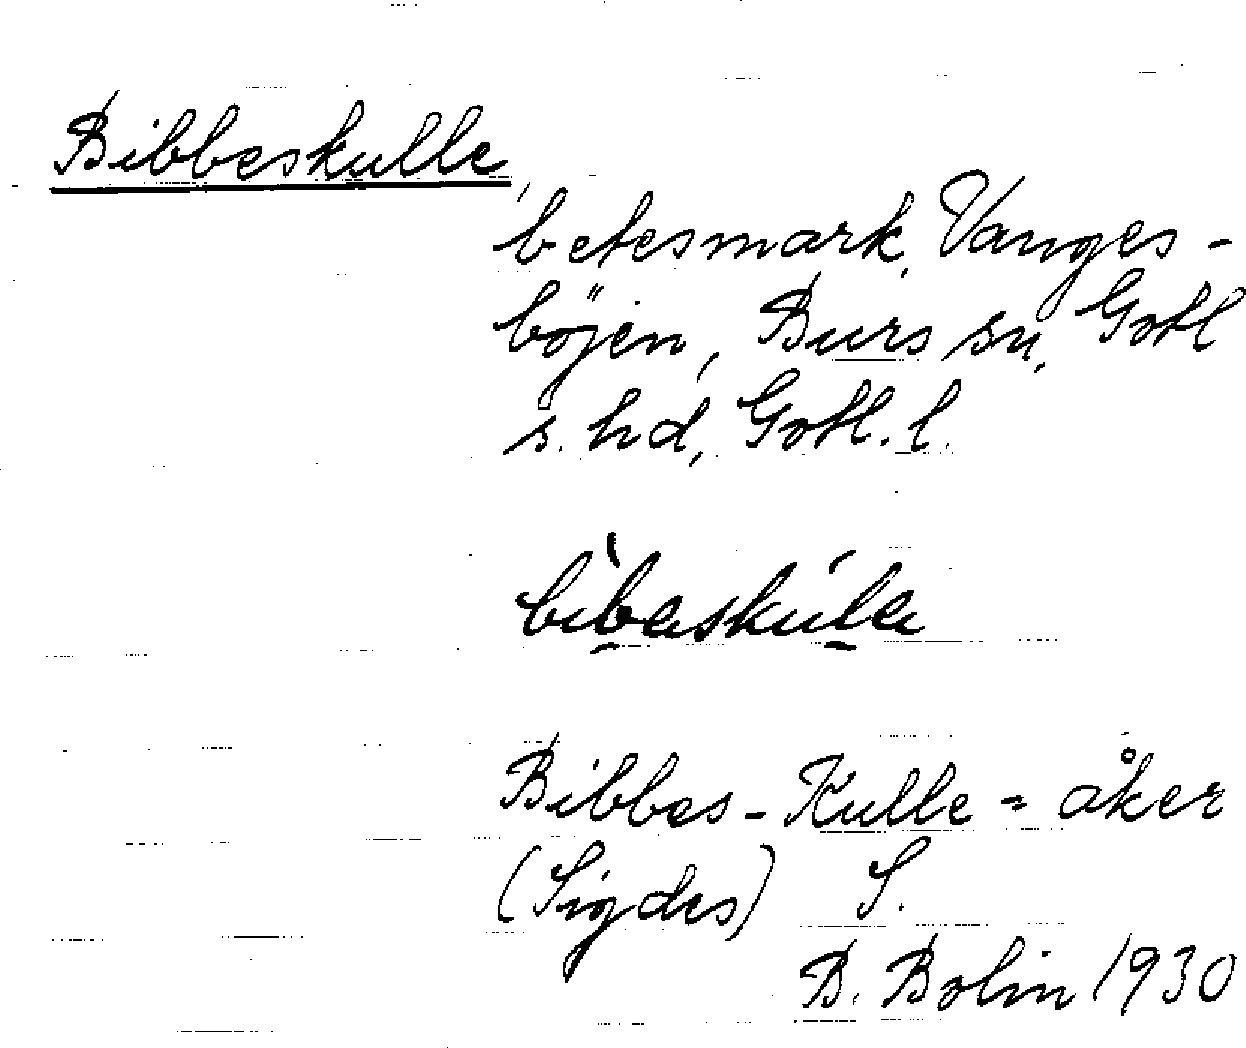 Bibbeskulle,
betesmark, Vanges-
böjen, Burs sn, Gotl
s. hd, Gotl. l.
bìbaskúla
Bibbes-Kulle = åker
(Sigdes) S.
B. Bolin 1930